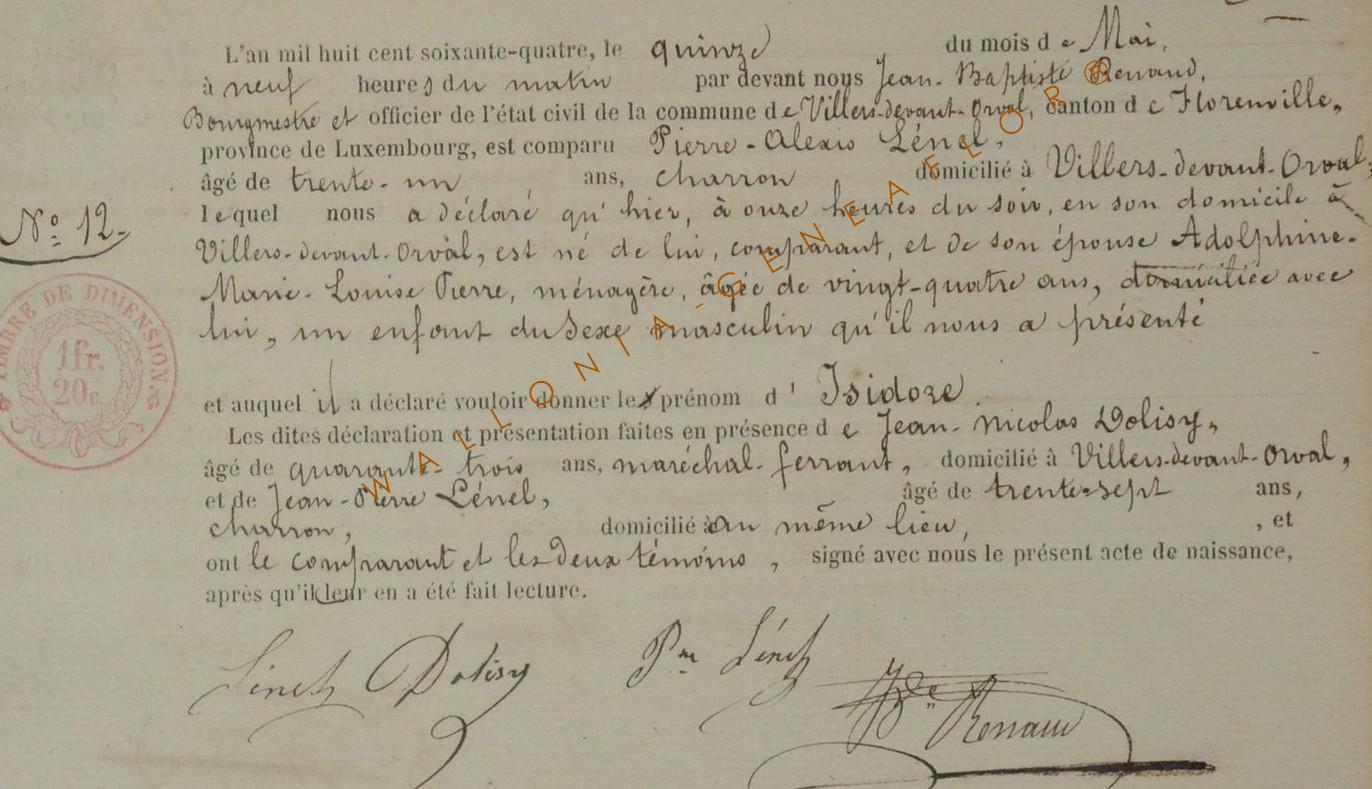 L'an mil huit cent soixante-quatre, le quinze du mois de Mai,
à neuf heures du matin par devant nous Jean-Baptiste Renaud,
Bourgmestre et officier de l'état civil de la commune de Villers-devant-Orval, canton de Florenville,
province de Luxembourg, est comparu Pierre-Alexis Lénel,
âgé de trente-un ans, charron domicilié à Villers-devant-Orval,
lequel nous a déclaré qu'hier, à onze heures du soir, en son domicile à
N° 12.
Villers-devant-Orval, est né de lui, comparant, et de son épouse Adolphine-
Marie-Louise Pierre, ménagère, âgée de vingt-quatre ans, domiciliée avec
lui, un enfant du sexe masculin qu'il nous a présenté
TIMBRE DE DIMENSION.
1fr.
20c.
et auquel il a déclaré vouloir donner le prénom d'Isidore.
Les dites déclaration et présentation faites en présence de Jean-Nicolas Dolisy,
âgé de quarante-trois ans, maréchal-ferrant, domicilié à Villers-devant-Orval,
et de Jean-Pierre Lénel, âgé de trente-sept ans,
charron, domicilié au même lieu, , et
ont le comparant et les deux témoins, signé avec nous le présent acte de naissance,
après qu'il leur en a été fait lecture.
Dolisy
Renaud
WALLONIA-GENEAFLOR®